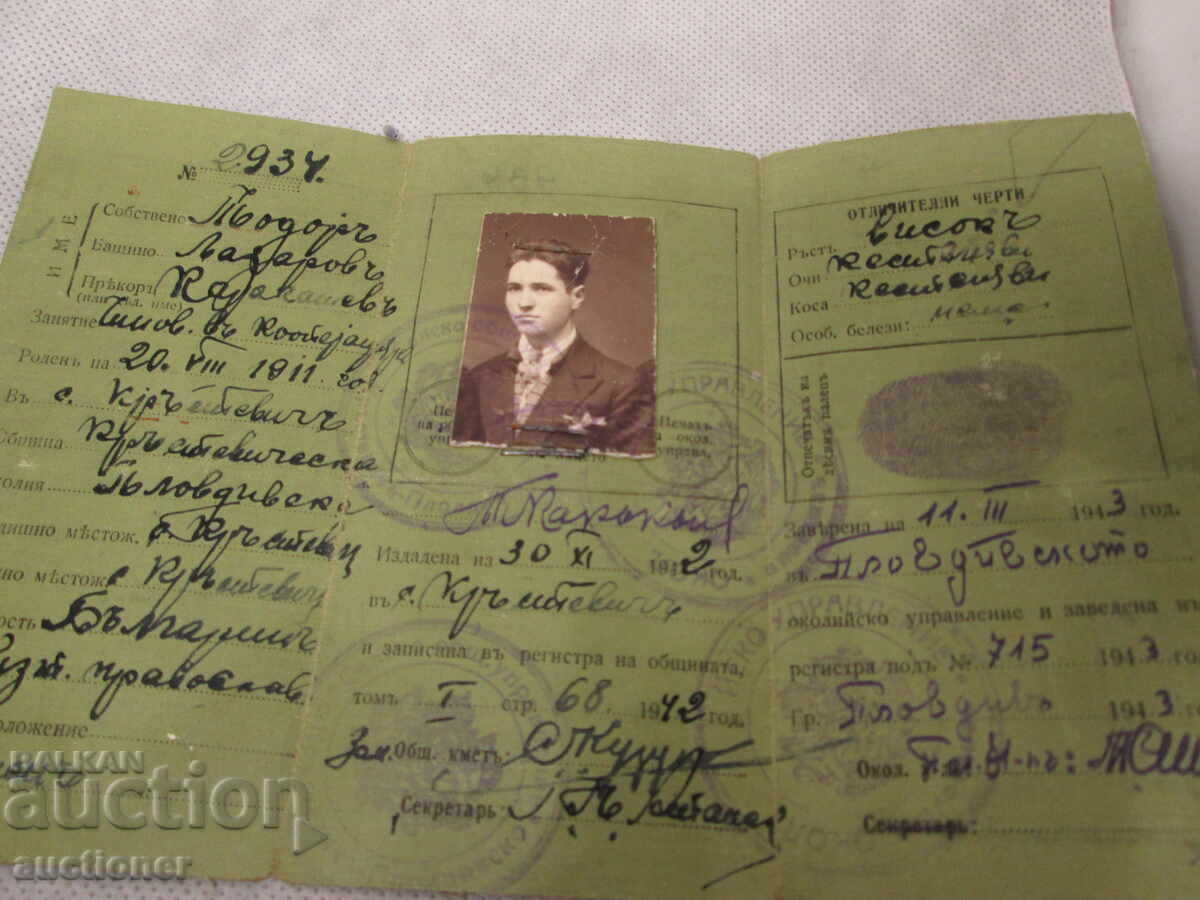 № 2934.
ИМЕ
Собствено Тодоръ
Бащино Лазаровъ
Прѣкоръ Каракашевъ
(или фам. име)
Занятие
Роденъ на 20. VIII 1911 год.
Въ с. Кръстевичъ
Община Кръстевическа
колия Пловдивска
мѣстож. с. Кръстевич
но мѣстож с Кръстевичъ
ость Българинъ
изт. православ.
положение
Печатъ
на
Печатъ
на окол.
управл.
Издадена на 30 XI 1942 год.
въ с. Кръстевичъ
и записана въ регистра на общината,
томъ I стр. 68. 1942 год.
Зам. Общ. кметъ
Секретарь
ОТЛИЧИТЕЛНИ ЧЕРТИ
Ръстъ високъ
Очи кестеняви
Коса кестеняви
Особ. белези: няма
Отпечатъкъ на
дѣсния палецъ
Завѣрена на 11. III 1943 год.
въ Пловдивското
околийско управление и заведена въ
регистра подъ № 715 1943
Гр. Пловдивъ 1943
Окол.
Секретарь:
BALKAN
auction
auctioner